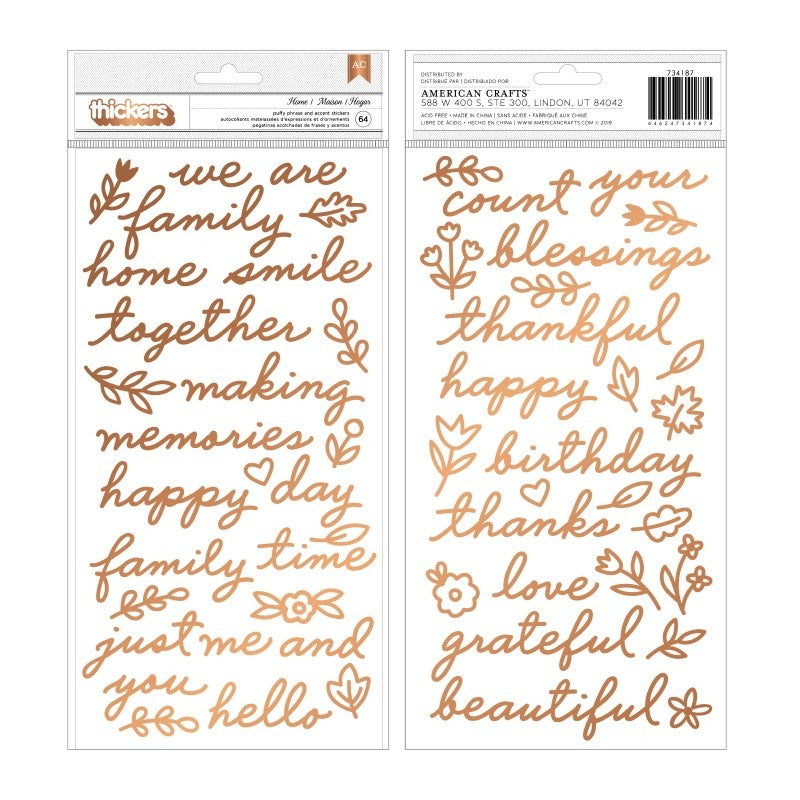 AC
thickers
Home / Maison / Hogar
puffy phrase and accent stickers
autocollants matelassées d'expressions et d'ornements
pegatinas acolchadas de frases y acentos
64
we are
family
home smile
together
making
memories
happy day
family time
just me and
you hello
DISTRIBUTED BY
DISTRIBUÉ PAR | DISTRIBUIDO POR
AMERICAN CRAFTS™
588 W 400 S, STE 300, LINDON, UT 84042
ACID FREE • MADE IN CHINA | SANS ACIDE • FABRIQUÉ AUX CHINE
LIBRE DE ÁCIDO • HECHO EN CHINA | WWW.AMERICANCRAFTS.COM © 2019
734187
count your
blessings
thankful
happy
birthday
thanks
love
grateful
beautiful